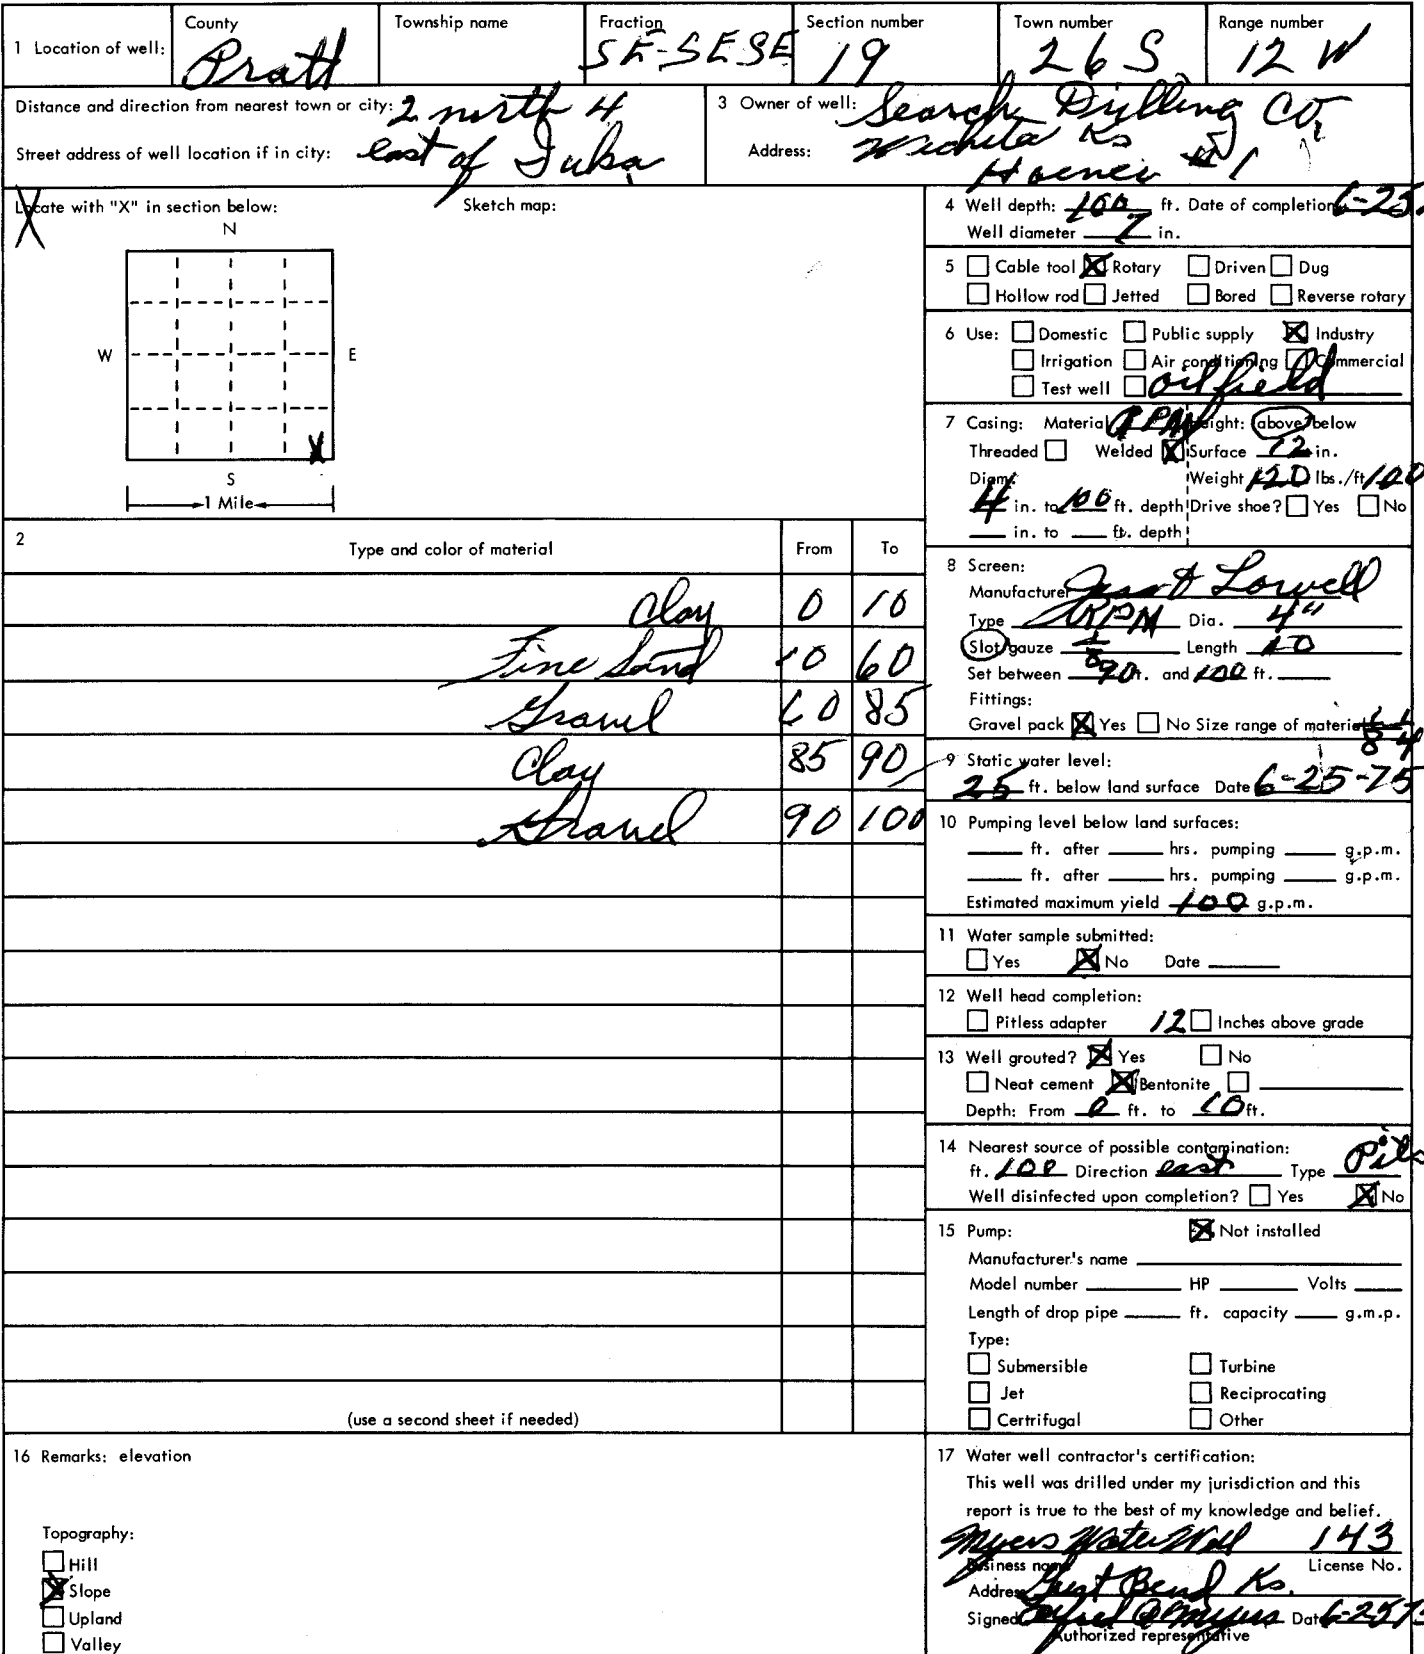 1 Location of well: County Township name Fraction Section number Town number Range number
Pratt SE-SESE 19 26 S 12 W
Distance and direction from nearest town or city: 2 north 4
Street address of well location if in city: east of Iuka
3 Owner of well: Search Drilling Co,
Address: Wichita Ks
#1
Locate with "X" in section below:
Sketch map:
N
W E
X
S
1 Mile
2 Type and color of material From To
Clay 0 10
Fine Sand 10 60
Gravel 60 85
Clay 85 90
Gravel 90 100
(use a second sheet if needed)
16 Remarks: elevation
Topography:
Hill
Slope
Upland
Valley
4 Well depth: 100 ft. Date of completion 6-25
Well diameter 7 in.
5 Cable tool Rotary Driven Dug
Hollow rod Jetted Bored Reverse rotary
6 Use: Domestic Public supply Industry
Irrigation Air conditioning Commercial
Test well oilfield
7 Casing: Material RPM Height: above/below
Threaded Welded Surface 12 in.
Diam. Weight 120 lbs./ft 100
4 in. to 100 ft. depth Drive shoe? Yes No
in. to ft. depth
8 Screen:
Manufacturer Lowell
Type RPM Dia. 4"
Slot/gauze 1/8 Length 10
Set between 90 ft. and 100 ft.
Fittings:
Gravel pack Yes No Size range of material 1/8 1/4
9 Static water level:
25 ft. below land surface Date 6-25-75
10 Pumping level below land surfaces:
ft. after hrs. pumping g.p.m.
ft. after hrs. pumping g.p.m.
Estimated maximum yield 100 g.p.m.
11 Water sample submitted:
Yes No Date
12 Well head completion:
Pitless adapter 12 Inches above grade
13 Well grouted? Yes No
Neat cement Bentonite
Depth: From 0 ft. to 10 ft.
14 Nearest source of possible contamination:
ft. 100 Direction east Type Pits
Well disinfected upon completion? Yes No
15 Pump: Not installed
Manufacturer's name
Model number HP Volts
Length of drop pipe ft. capacity g.m.p.
Type:
Submersible Turbine
Jet Reciprocating
Certrifugal Other
17 Water well contractor's certification:
This well was drilled under my jurisdiction and this
report is true to the best of my knowledge and belief.
Myers Water Well 143
Business name License No.
Address Great Bend Ks.
Signed Myers Date 6-25 75
Authorized representative